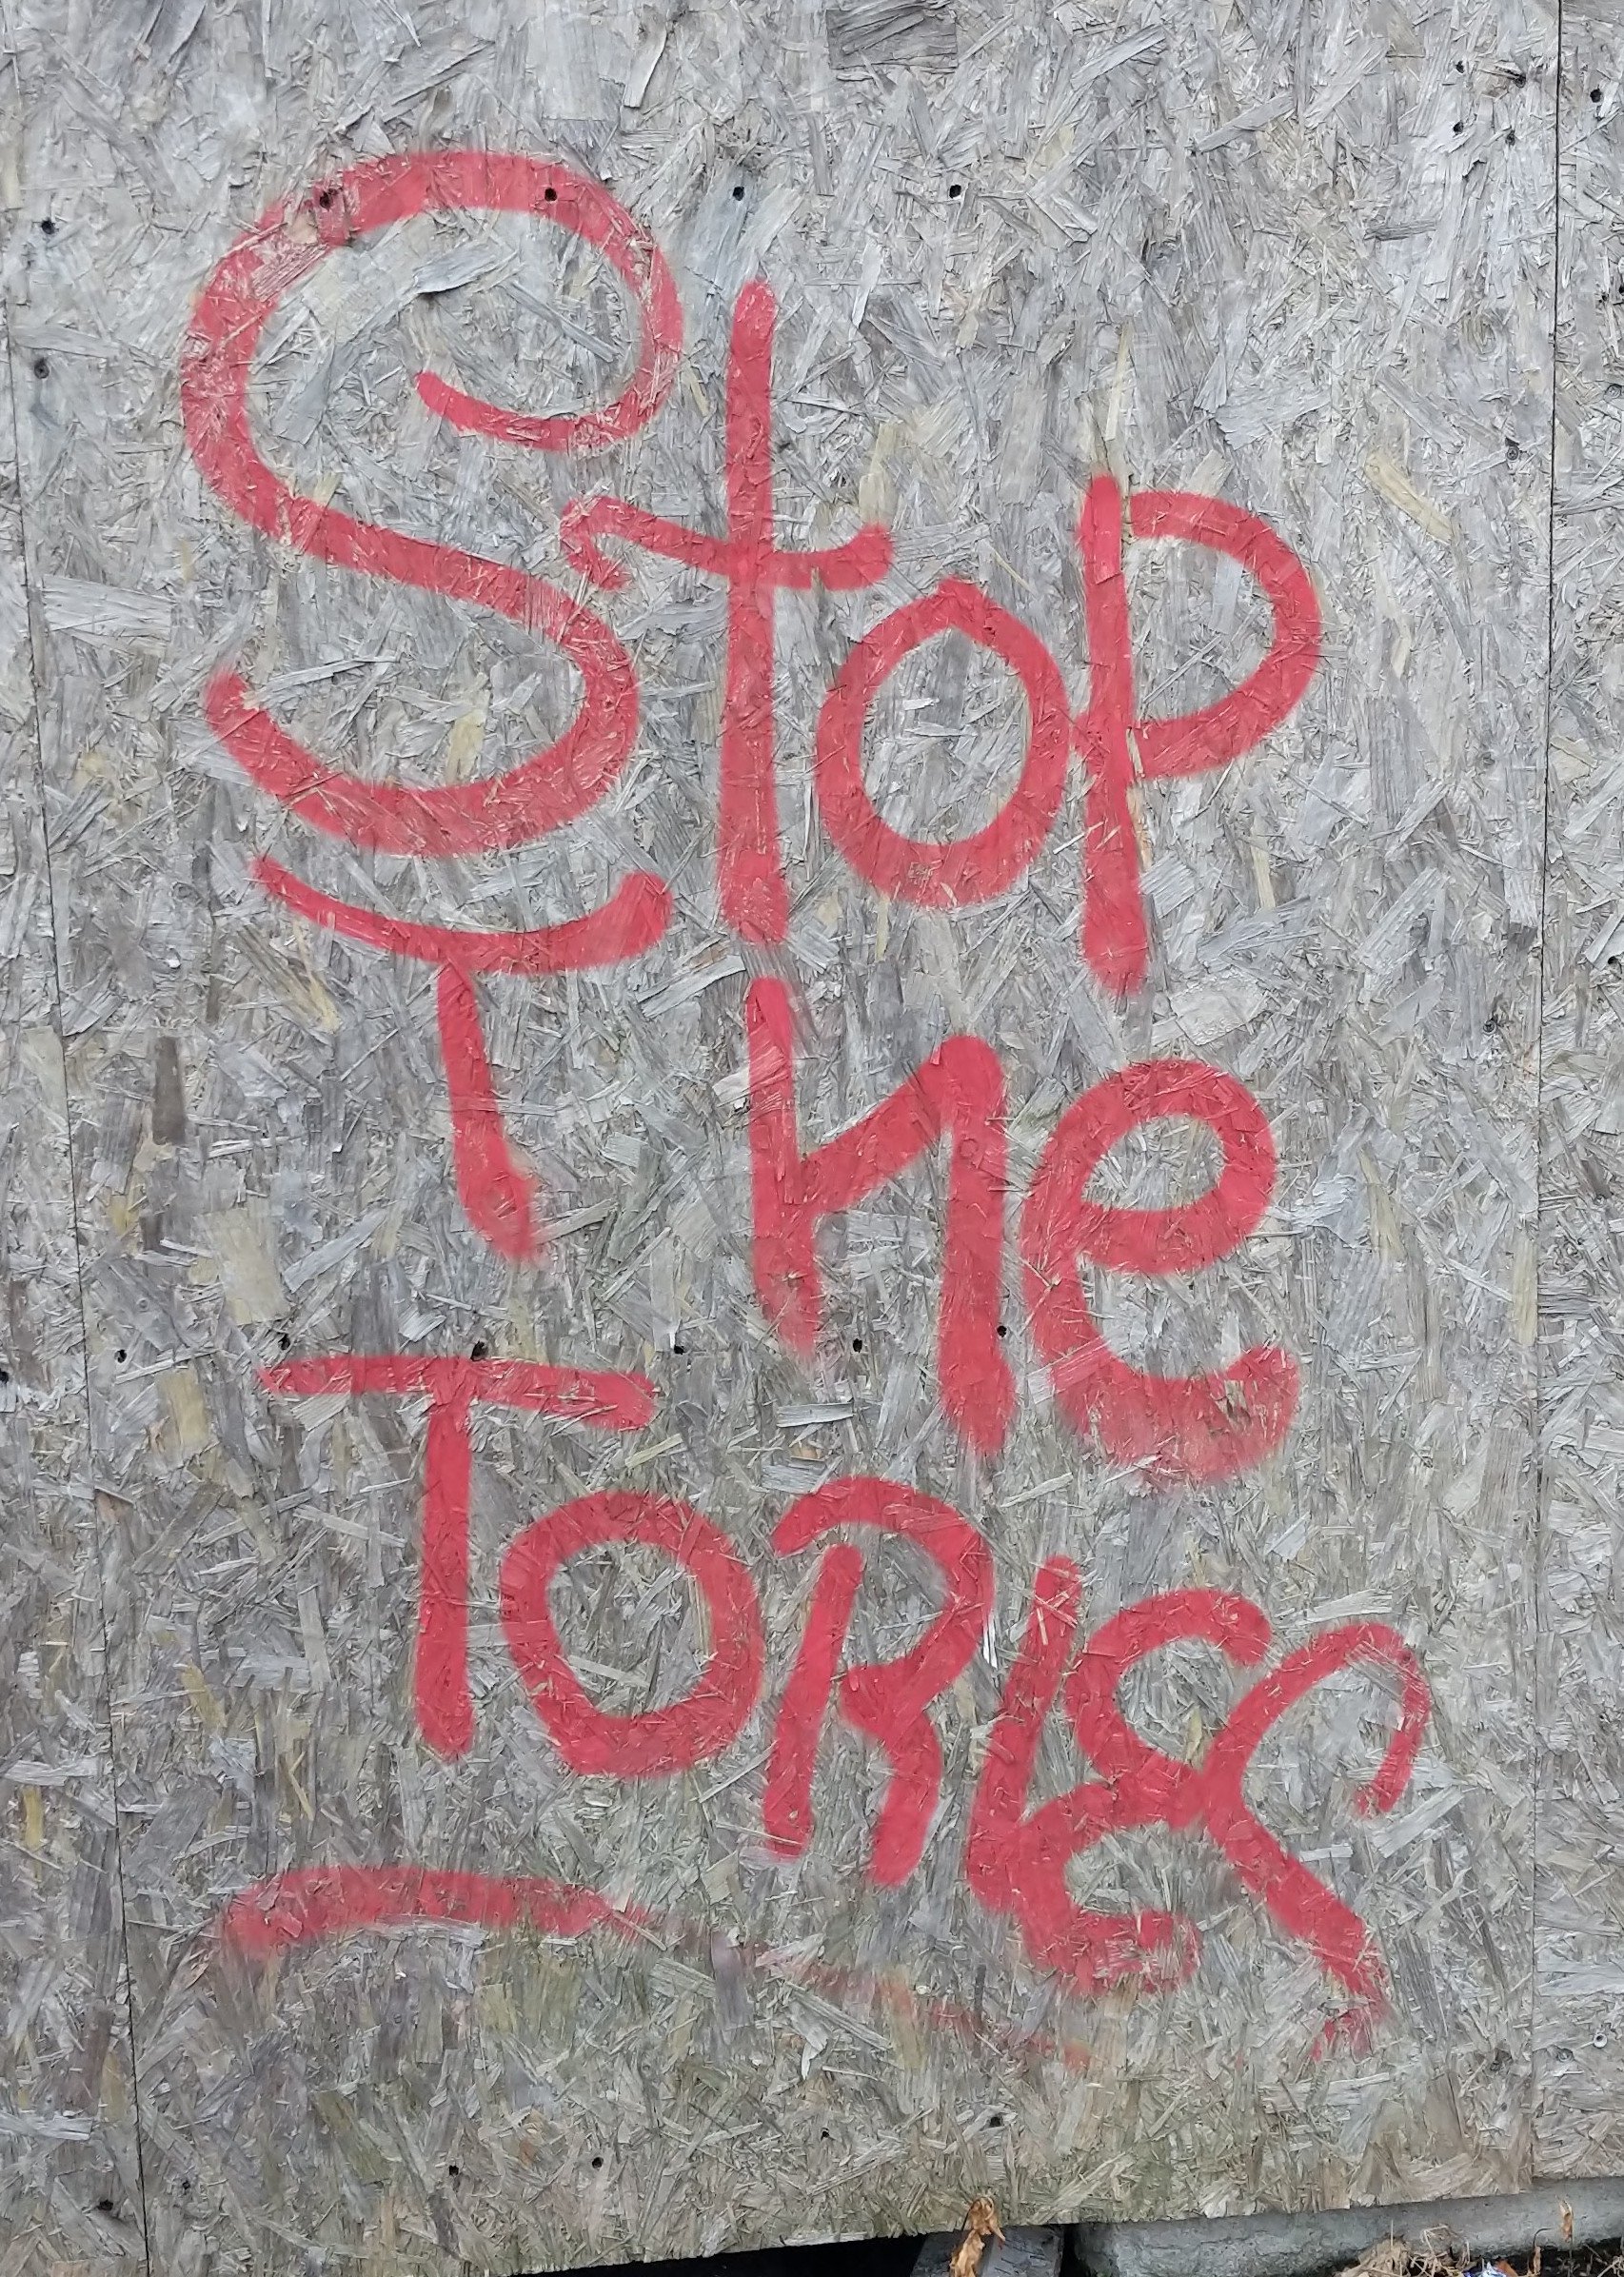 Stop
The
TORIES